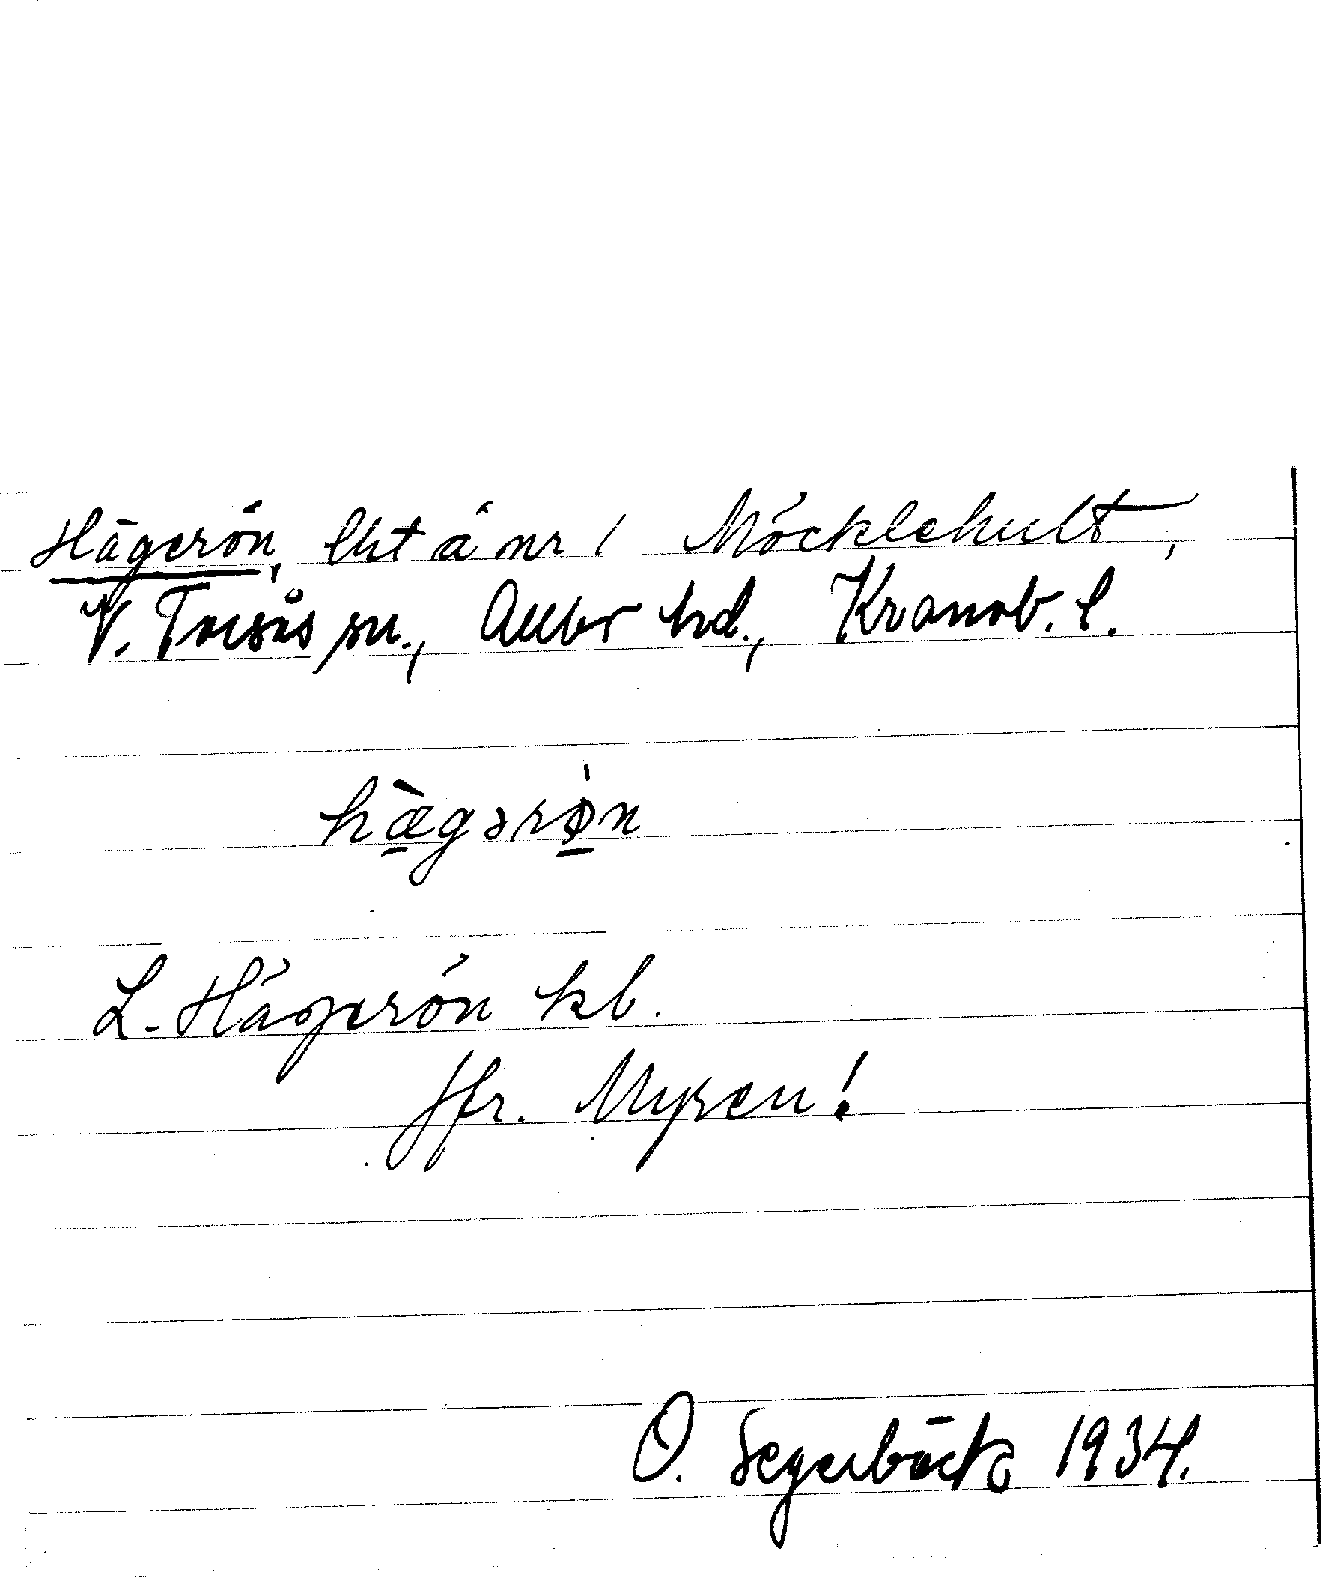 Hägerön, lht å nr 1 Möcklehult,
V. Torsås sn., Allbo hd., Kronob. l.
hæ̀gərø̀n
L. Hägerön kb.
Jfr. Myren!
O. Segerbäck 1934.